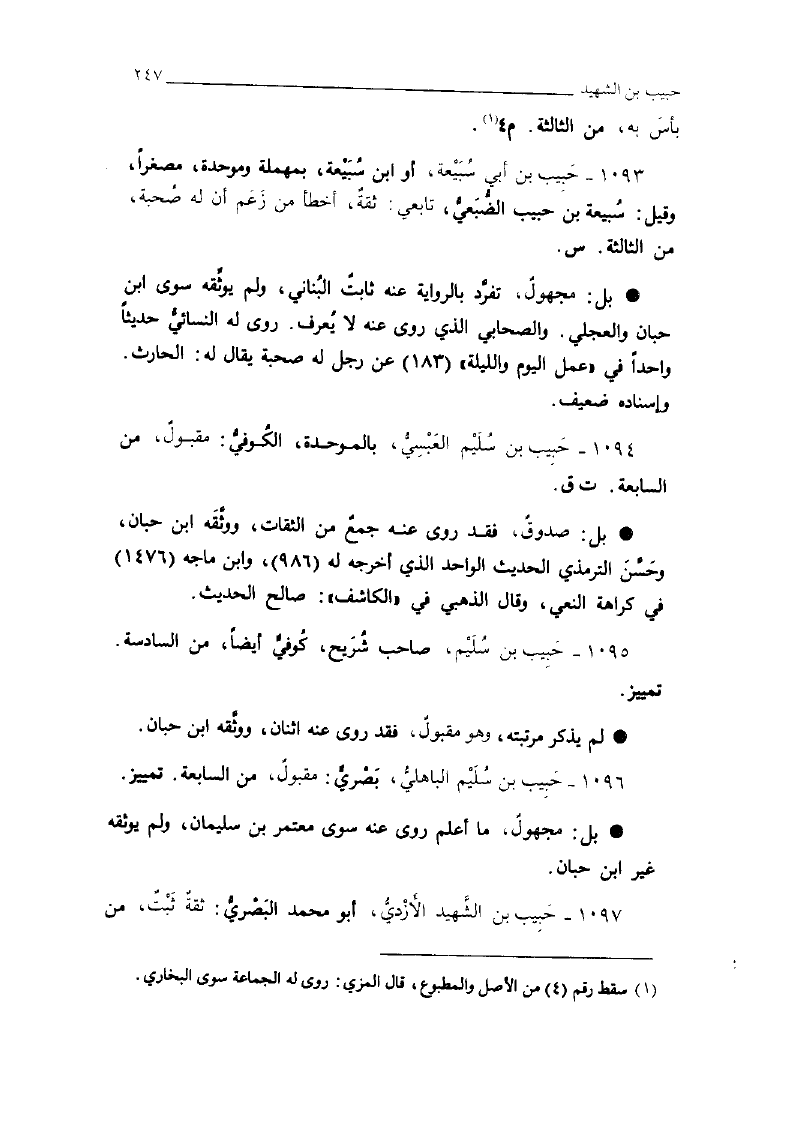 حبيب بن الشهيد ٢٤٧
بأسَ به، من الثالثة. م٤(١).
١٠٩٣ ـ حَبِيب بن أبي سُبَيْعة، أو ابن سُبَيْعة، بمهملة وموحدة، مصغراً،
وقيل: سُبيعة بن حبيب الضُّبَعيُّ، تابعي: ثقةٌ، أخطأ من زَعَم أن له صُحبة،
من الثالثة. س.
● بل: مجهولٌ، تفرَّد بالرواية عنه ثابتٌ البُناني، ولم يوثِّقه سوى ابن
حبان والعجلي. والصحابي الذي روى عنه لا يُعرف. روى له النسائيُّ حديثاً
واحداً في «عمل اليوم والليلة» (١٨٣) عن رجل له صحبة يقال له: الحارث.
وإسناده ضعيف.
١٠٩٤ ـ حَبِيب بن سُلَيْم العَبْسِيُّ، بالموحدة، الكُوفيُّ: مقبولٌ، من
السابعة. ت ق.
● بل: صدوقٌ، فقد روى عنه جمعٌ من الثقات، ووثَّقه ابن حبان،
وحَسَّنَ الترمذي الحديث الواحد الذي أخرجه له (٩٨٦)، وابن ماجه (١٤٧٦)
في كراهة النعي، وقال الذهبي في «الكاشف»: صالح الحديث.
١٠٩٥ ـ حَبِيب بن سُلَيْم، صاحب شُرَيح، كُوفيٌّ أيضاً، من السادسة.
تمييز.
● لم يذكر مرتبته، وهو مقبولٌ، فقد روى عنه اثنان، ووثَّقه ابن حبان.
١٠٩٦ ـ حَبِيب بن سُلَيْم الباهليُّ، بَصْريٌّ: مقبولٌ، من السابعة. تمييز.
● بل: مجهولٌ، ما أعلم روى عنه سوى معتمر بن سليمان، ولم يوثقه
غير ابن حبان.
١٠٩٧ ـ حَبِيب بن الشَّهيد الأَزْديُّ، أبو محمد البَصْريُّ: ثقةٌ ثَبْتٌ، من
(١) سقط رقم (٤) من الأصل والمطبوع، قال المزي: روى له الجماعة سوى البخاري.